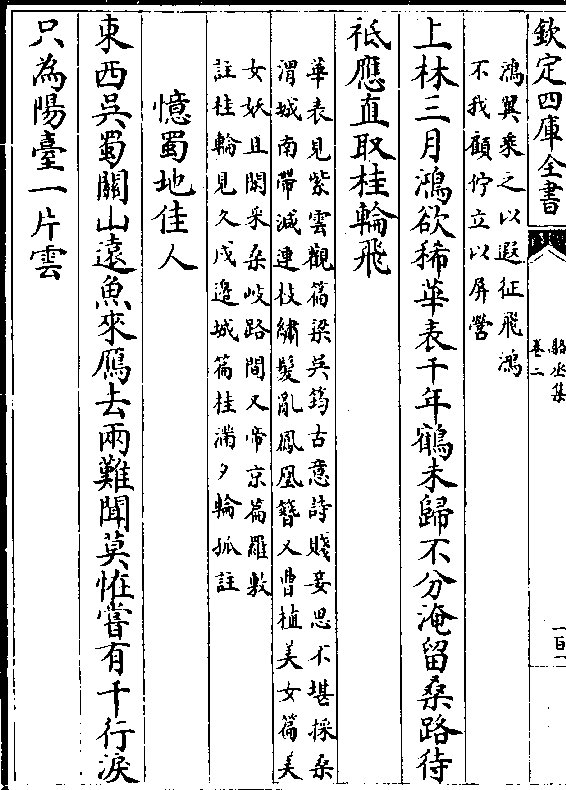 欽定四庫全書
駱丞集
卷二
一百一
鴻翼乘之以遐征飛鴻
不我顧佇立以屏營
上林三月鴻欲稀華表千年鶴未歸不分淹留桑路待
祗應直取桂輪飛
華表見紫雲觀篇梁吳筠古意詩賤妾思不堪採桑
渭城南帶減連枝繡髮亂鳳凰簪又曹植美女篇美
女妖且閑采桑岐路間又帝京篇羅敷
註桂輪見久戍邉城篇桂滿夕輪孤註
憶蜀地佳人
東西吳蜀關山遠魚來鴈去兩難聞莫恠嘗有千行淚
只為陽臺一片雲